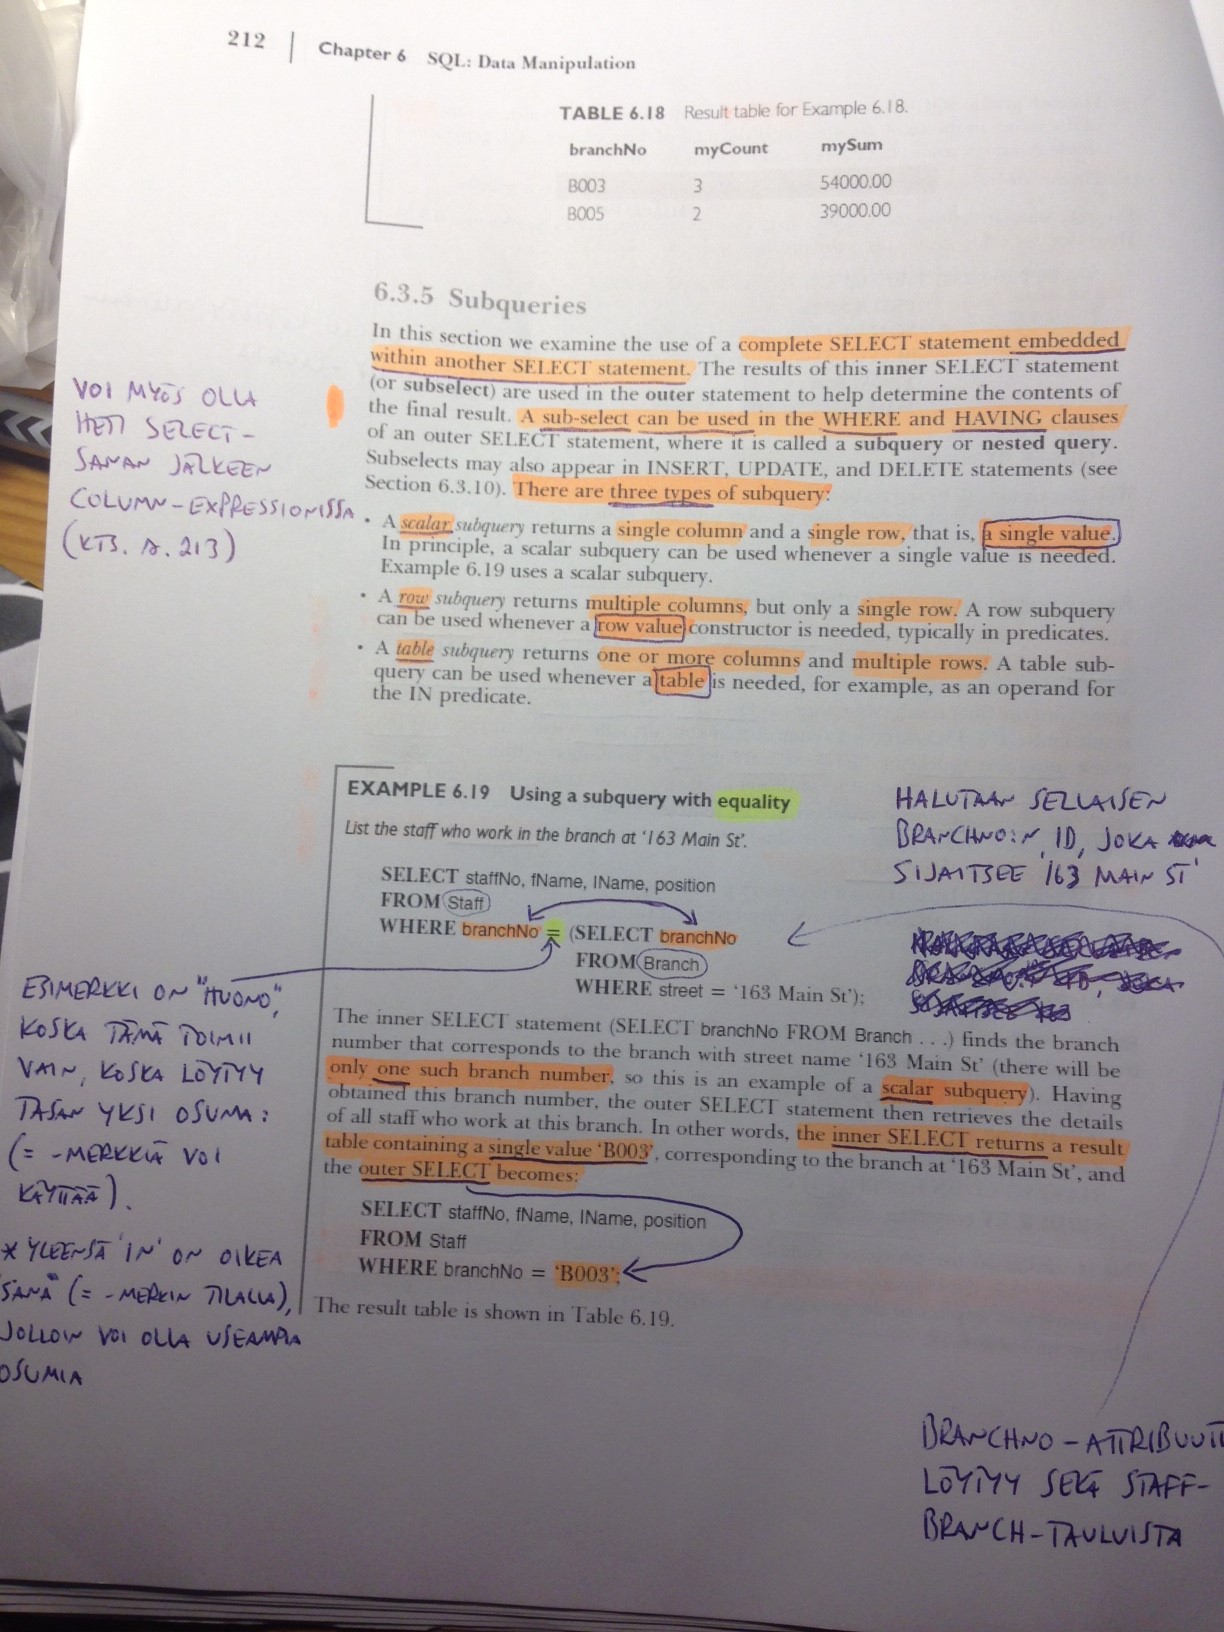 212 | Chapter 6 SQL: Data Manipulation
TABLE 6.18 Result table for Example 6.18.
branchNo myCount mySum
B003 3 54000.00
B005 2 39000.00
6.3.5 Subqueries
In this section we examine the use of a complete SELECT statement embedded
within another SELECT statement. The results of this inner SELECT statement
(or subselect) are used in the outer statement to help determine the contents of
the final result. A sub-select can be used in the WHERE and HAVING clauses
of an outer SELECT statement, where it is called a subquery or nested query.
Subselects may also appear in INSERT, UPDATE, and DELETE statements (see
Section 6.3.10). There are three types of subquery:
VOI MYÖS OLLA
HETI SELECT-
SANAN JÄLKEEN
COLUMN-EXPRESSIONISSA
(KTS. s. 213)
• A scalar subquery returns a single column and a single row, that is, a single value.
In principle, a scalar subquery can be used whenever a single value is needed.
Example 6.19 uses a scalar subquery.
• A row subquery returns multiple columns, but only a single row. A row subquery
can be used whenever a row value constructor is needed, typically in predicates.
• A table subquery returns one or more columns and multiple rows. A table sub-
query can be used whenever a table is needed, for example, as an operand for
the IN predicate.
EXAMPLE 6.19 Using a subquery with equality
List the staff who work in the branch at '163 Main St'.
SELECT staffNo, fName, lName, position
FROM Staff
WHERE branchNo = (SELECT branchNo
FROM Branch
WHERE street = '163 Main St');
HALUTAAN SELLAISEN
BRANCHNO:N ID, JOKA
SIJAITSEE '163 MAIN ST'
The inner SELECT statement (SELECT branchNo FROM Branch . . .) finds the branch
number that corresponds to the branch with street name '163 Main St' (there will be
only one such branch number, so this is an example of a scalar subquery). Having
obtained this branch number, the outer SELECT statement then retrieves the details
of all staff who work at this branch. In other words, the inner SELECT returns a result
table containing a single value 'B003', corresponding to the branch at '163 Main St', and
the outer SELECT becomes:
SELECT staffNo, fName, lName, position
FROM Staff
WHERE branchNo = 'B003';
The result table is shown in Table 6.19.
ESIMERKKI ON "HUONO",
KOSKA TÄMÄ TOIMII
VAIN, KOSKA LÖYTYY
TASAN YKSI OSUMA:
(= -MERKKIÄ VOI
KÄYTTÄÄ).
* YLEENSÄ 'IN' ON OIKEA
SANA (= -MERKIN TILALLA),
JOLLOIN VOI OLLA USEAMPIA
OSUMIA
BRANCHNO-ATTRIBUUTTI
LÖYTYY SEKÄ STAFF-
BRANCH-TAULUISTA